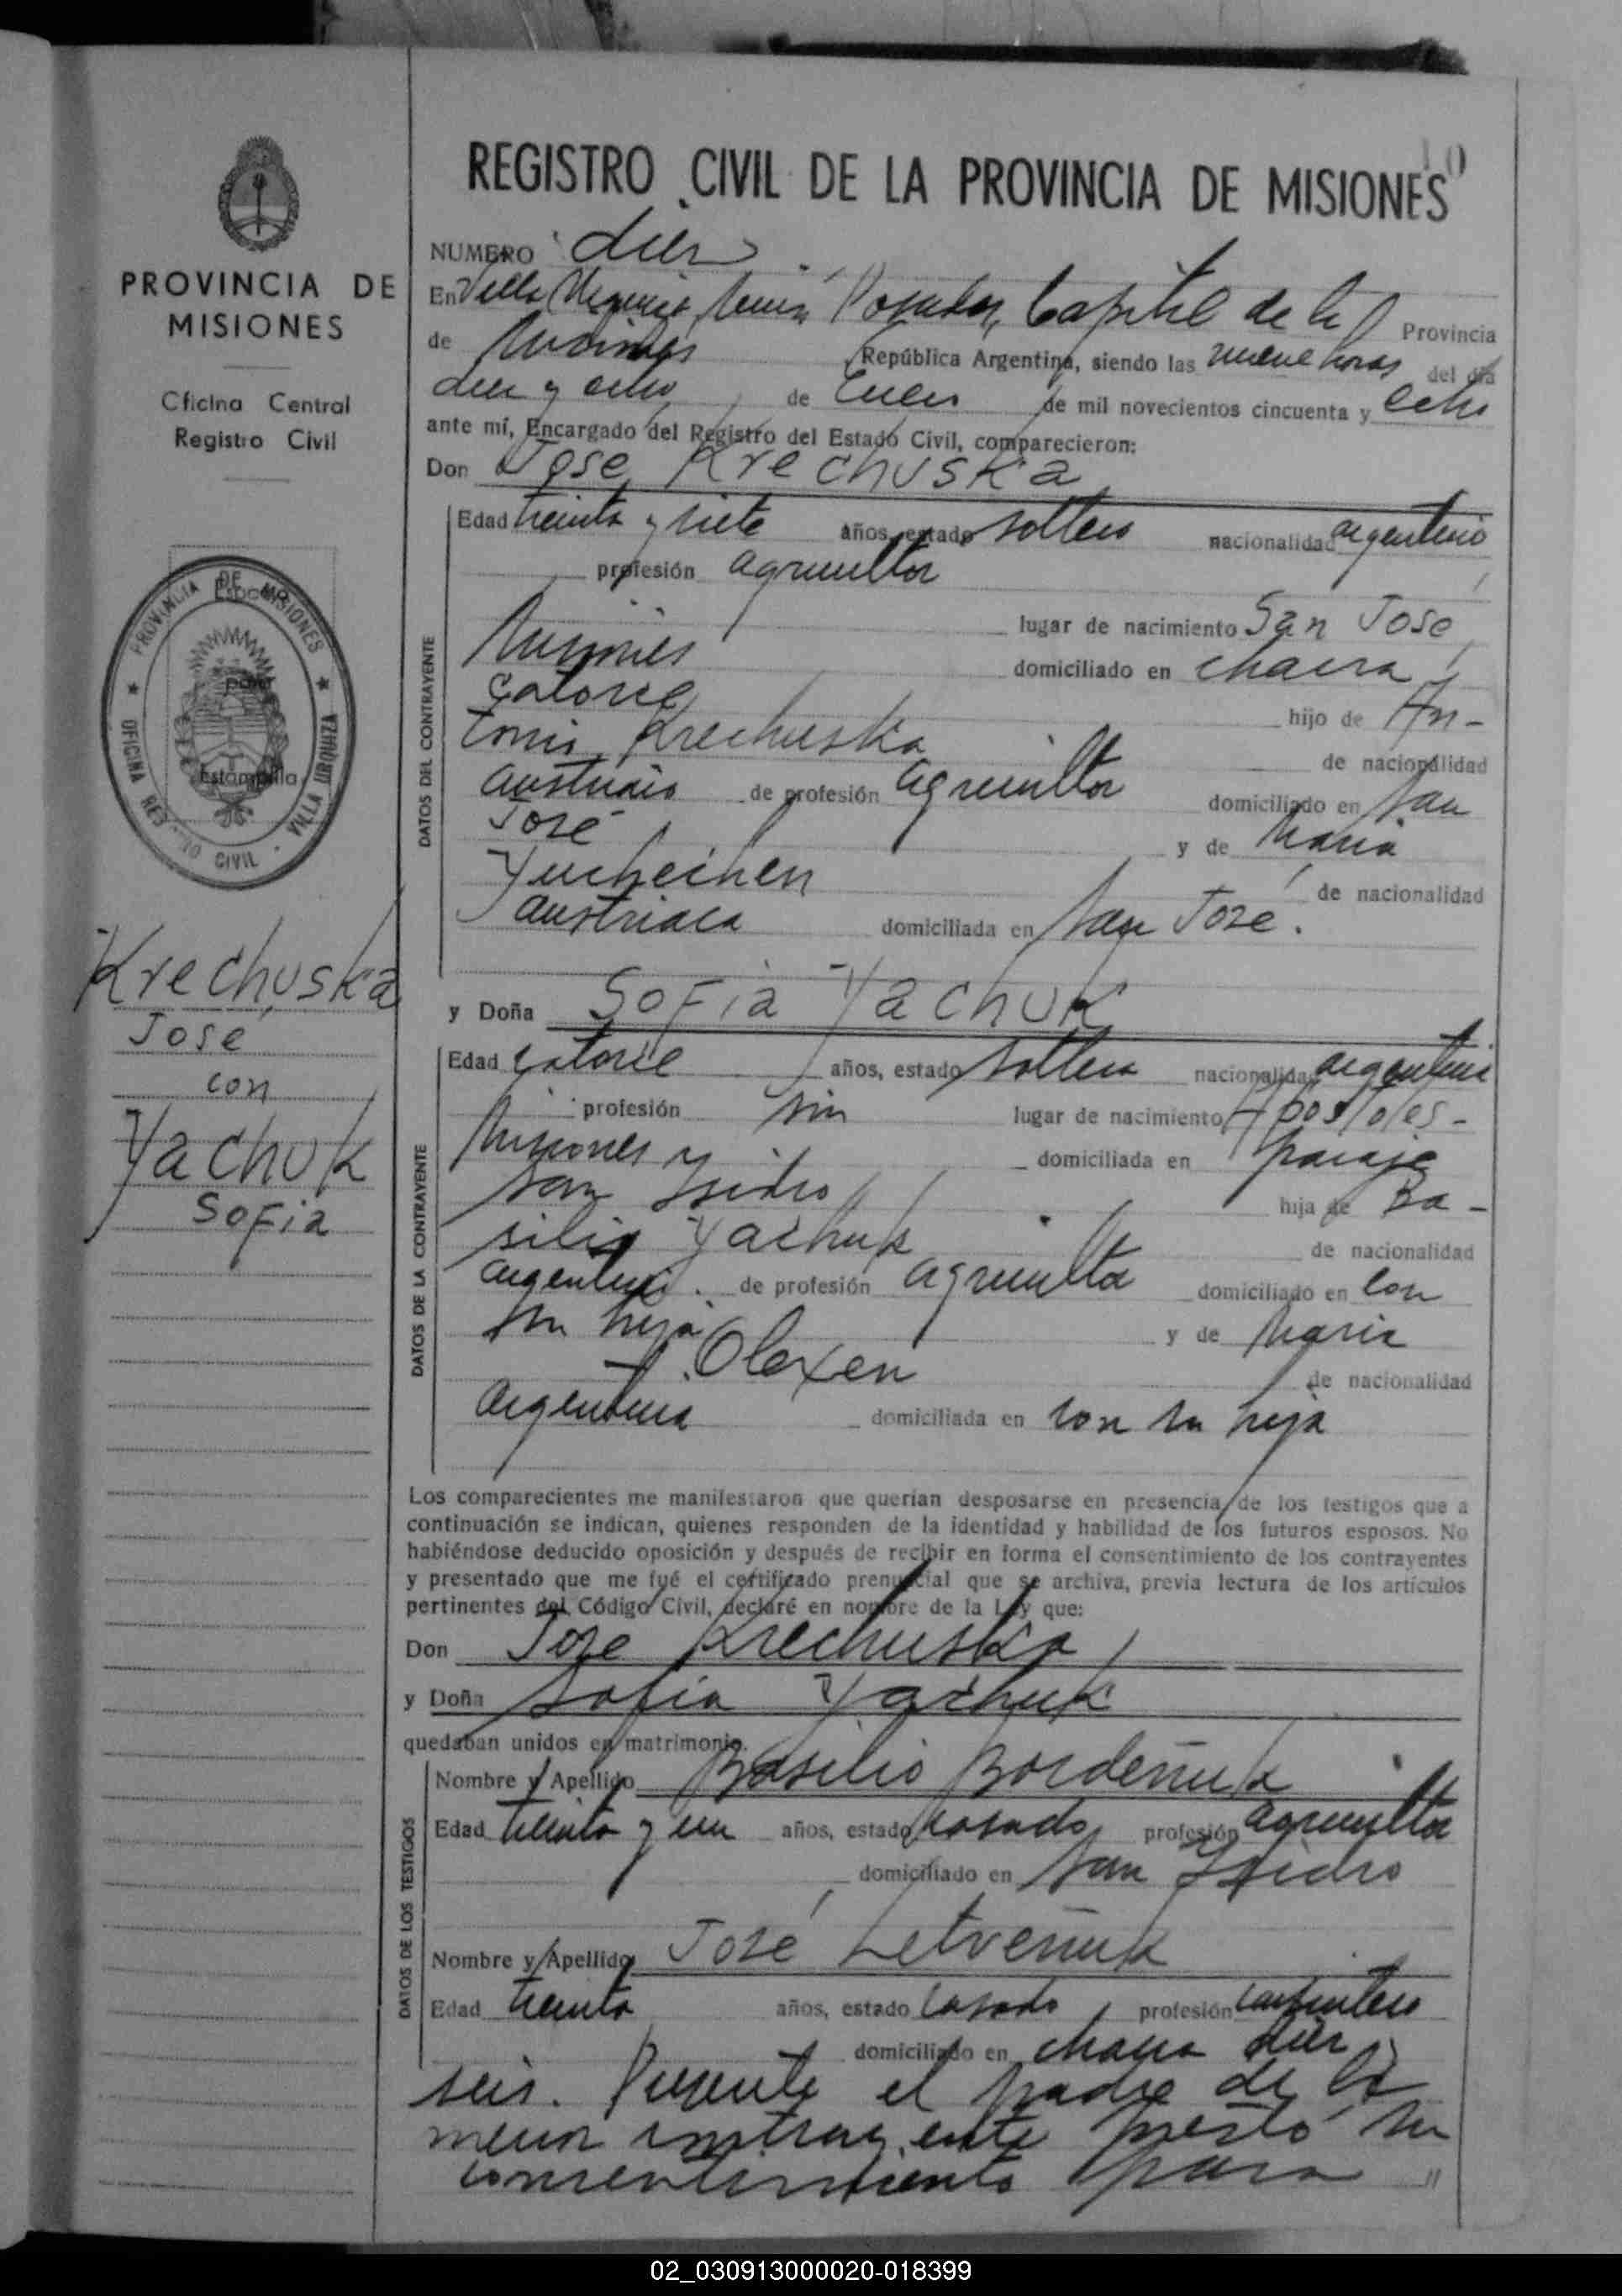 10
REGISTRO CIVIL DE LA PROVINCIA DE MISIONES
PROVINCIA DE
MISIONES
Oficina Central
Registro Civil
PROVINCIA DE MISIONES
OFICINA REGISTRO CIVIL - VILLA URQUIZA
Espacio
para
Estampilla
Krechuska
José
con
Yachuk
Sofia
NUMERO diez
En Villa Urquiza, Posadas, Capital de la Provincia
de Misiones República Argentina, siendo las nueve horas del día
diez y ocho de Enero de mil novecientos cincuenta y ocho
ante mí, Encargado del Registro del Estado Civil, comparecieron:
Don José Krechuska
Edad treinta y siete años, estado soltero nacionalidad argentino
profesión agricultor
lugar de nacimiento San José
Misiones domiciliado en chacra
catorce hijo de An-
tonio Krechuska de nacionalidad
austriaco de profesión agricultor domiciliado en San
José y de Maria
de nacionalidad
austriaca domiciliada en San José.
y Doña Sofia Yachuk
Edad catorce años, estado soltera nacionalidad argentina
profesión sin lugar de nacimiento Apostoles -
Misiones y domiciliada en paraje
San Isidro hija de Ba-
silio Yachuk de nacionalidad
argentino. de profesión agricultor domiciliado en con
su hija y de Maria
Olexen de nacionalidad
argentina domiciliada en con su hija
DATOS DEL CONTRAYENTE
DATOS DE LA CONTRAYENTE
Los comparecientes me manifestaron que querían desposarse en presencia de los testigos que a
continuación se indican, quienes responden de la identidad y habilidad de los futuros esposos. No
habiéndose deducido oposición y después de recibir en forma el consentimiento de los contrayentes
y presentado que me fué el certificado prenupcial que se archiva, previa lectura de los artículos
pertinentes del Código Civil, declaré en nombre de la Ley que:
Don José Krechuska
y Doña Sofia Yachuk
quedaban unidos en matrimonio.
DATOS DE LOS TESTIGOS
Nombre y Apellido Basilio Bordeñuk
Edad treinta y un años, estado casado, profesión agricultor
domiciliado en San Isidro
Nombre y Apellido José Letveñuk
Edad treinta años, estado casado, profesión carpintero
domiciliado en chacra diez
seis. Presente el padre de la
menor contrayente prestó su
consentimiento para "
02_030913000020-018399